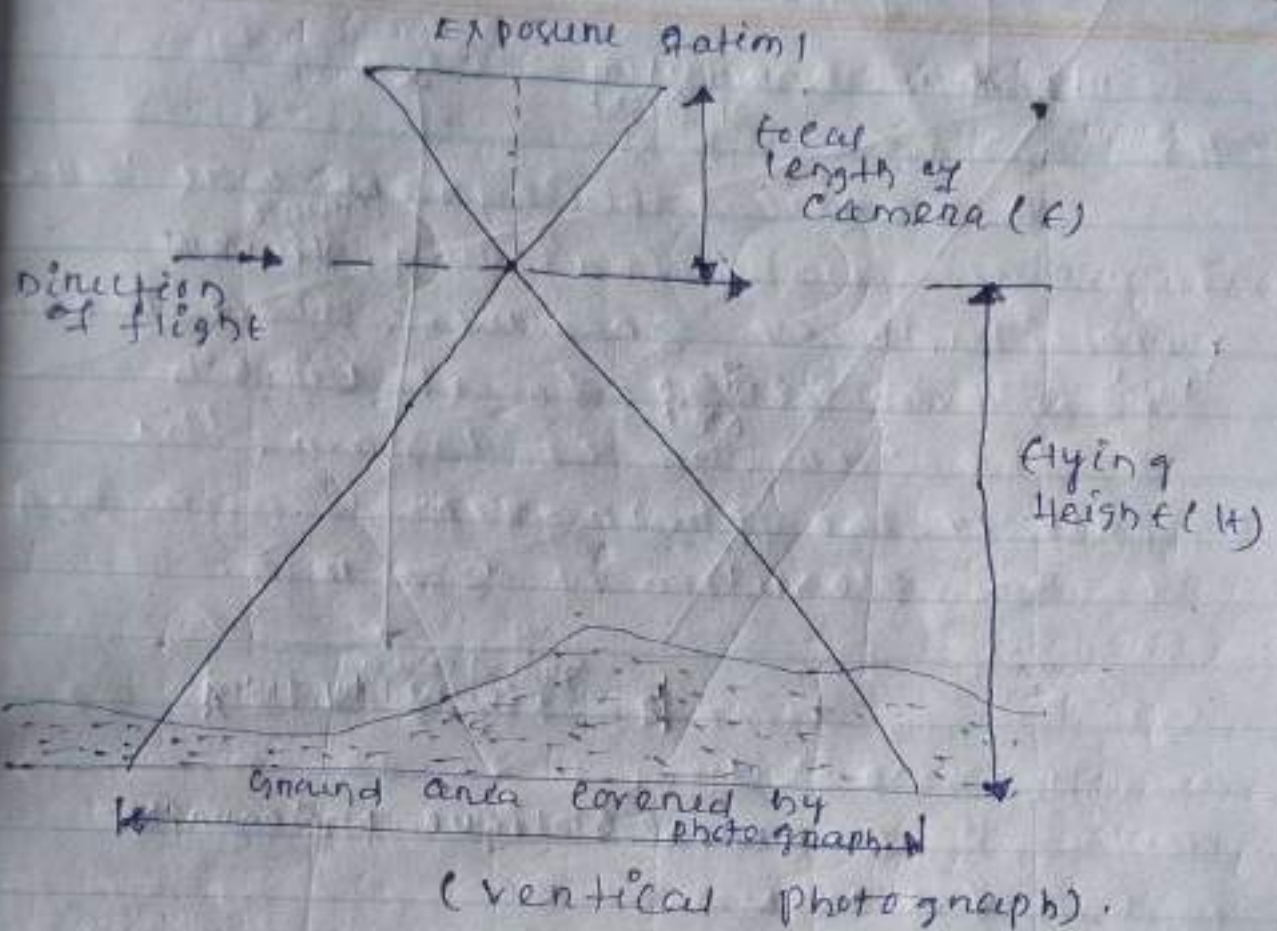 Exposure Station 1
focal
length of
Camera (f)
Direction
of flight
flying
Height (H)
Ground area covered by
photograph
(vertical photograph).